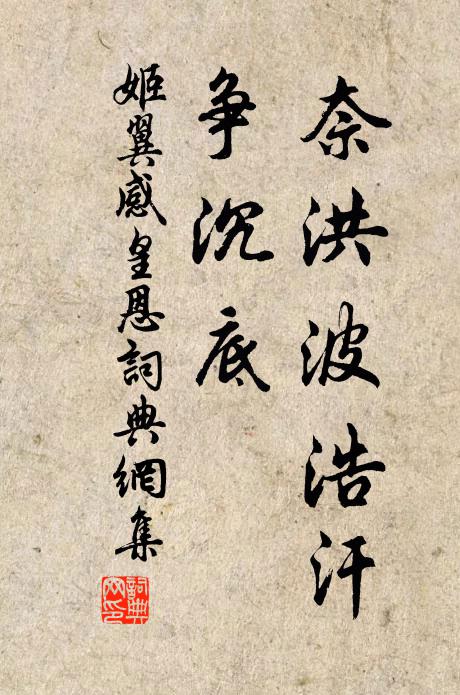 奈洪波浩汗
争沉底
姬翼感皇恩詞典網集
詞典网印